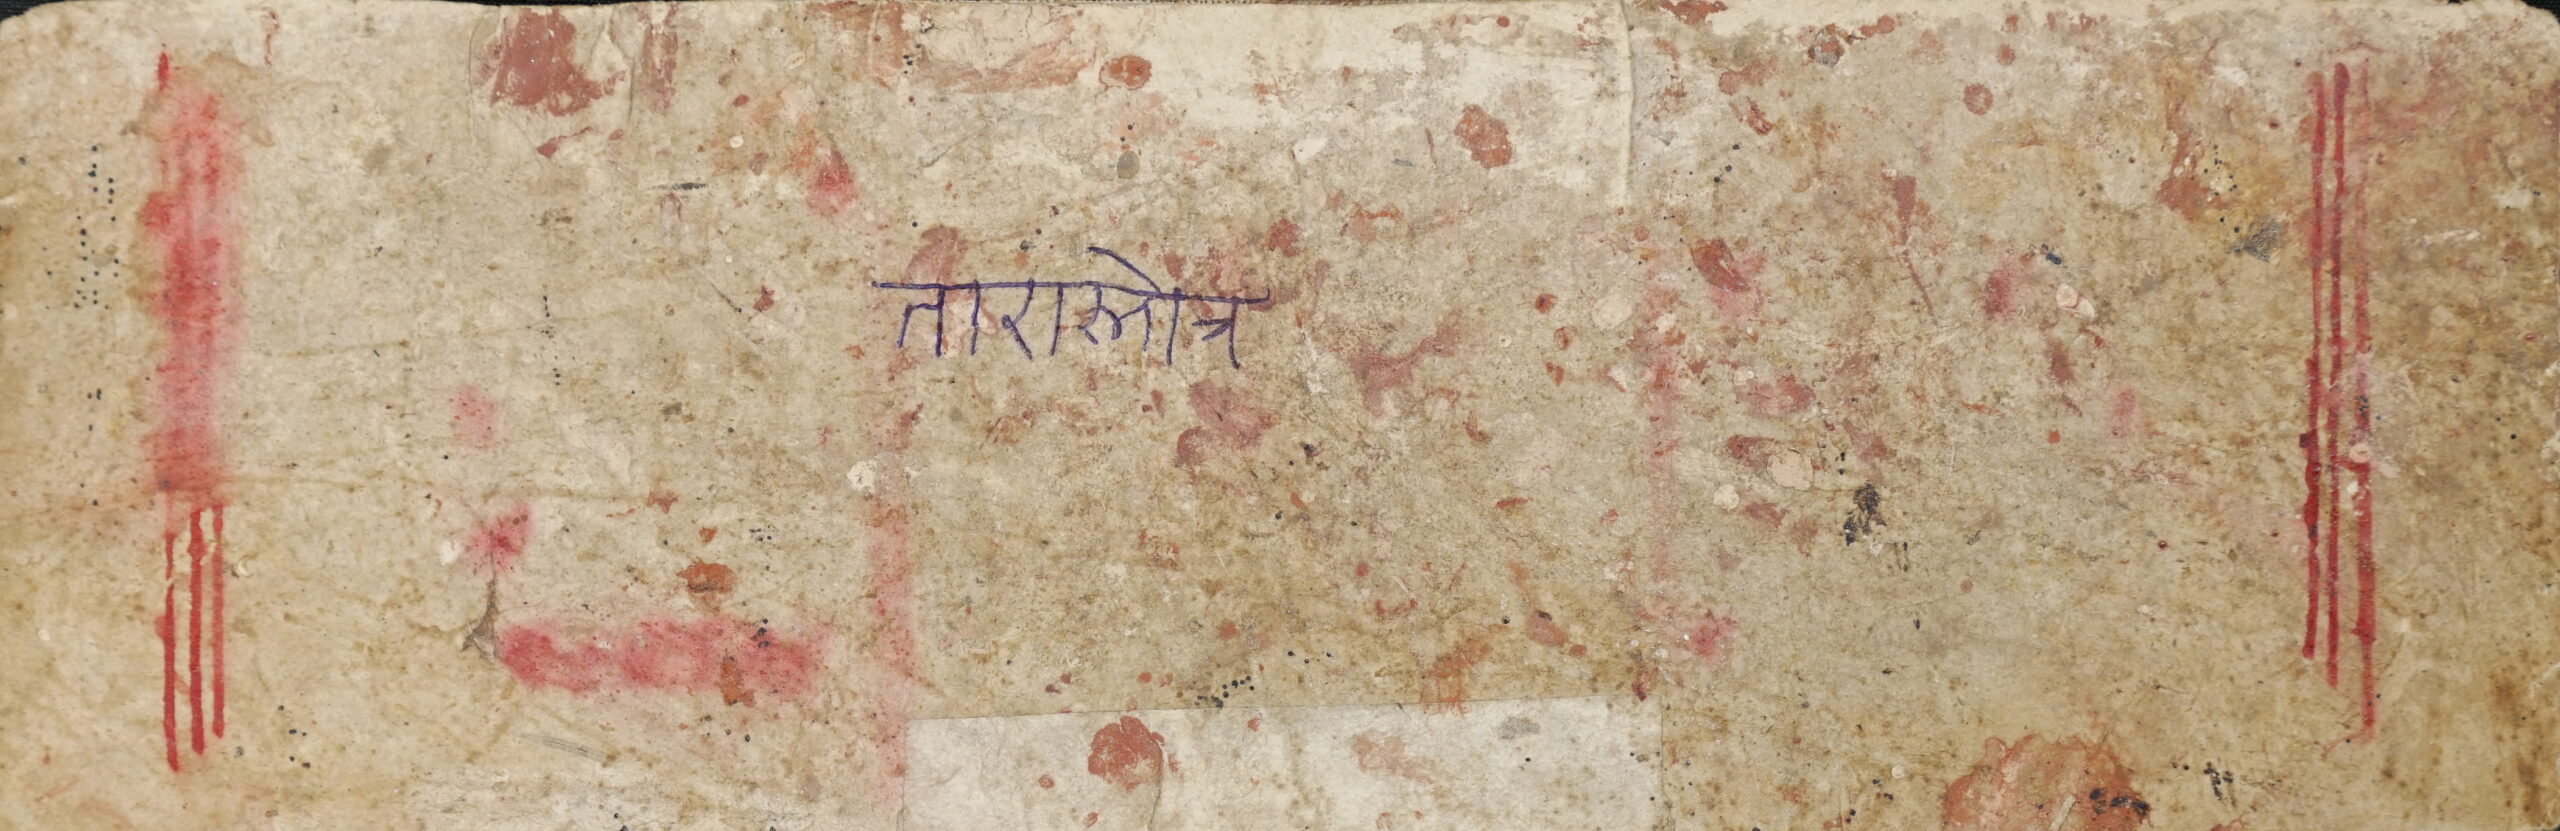 तारास्तोत्र